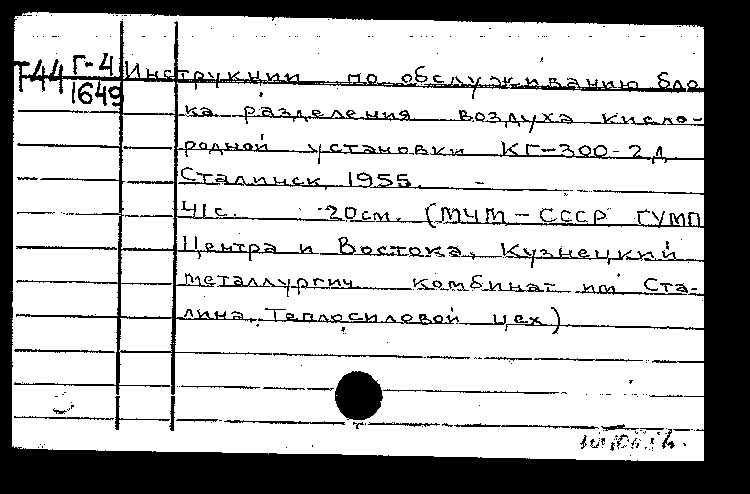 Т44 Г-4 Инструкции по обслуживанию бло
1649 ка разделения воздуха кисло-
родной установки КГ-300-2Д
Сталинск, 1955. -
41с. 20см. (МЧМ - СССР ГУМП
Центра и Востока, Кузнецкий
металлургич. комбинат им Ста-
лина, Теплосиловой цех)